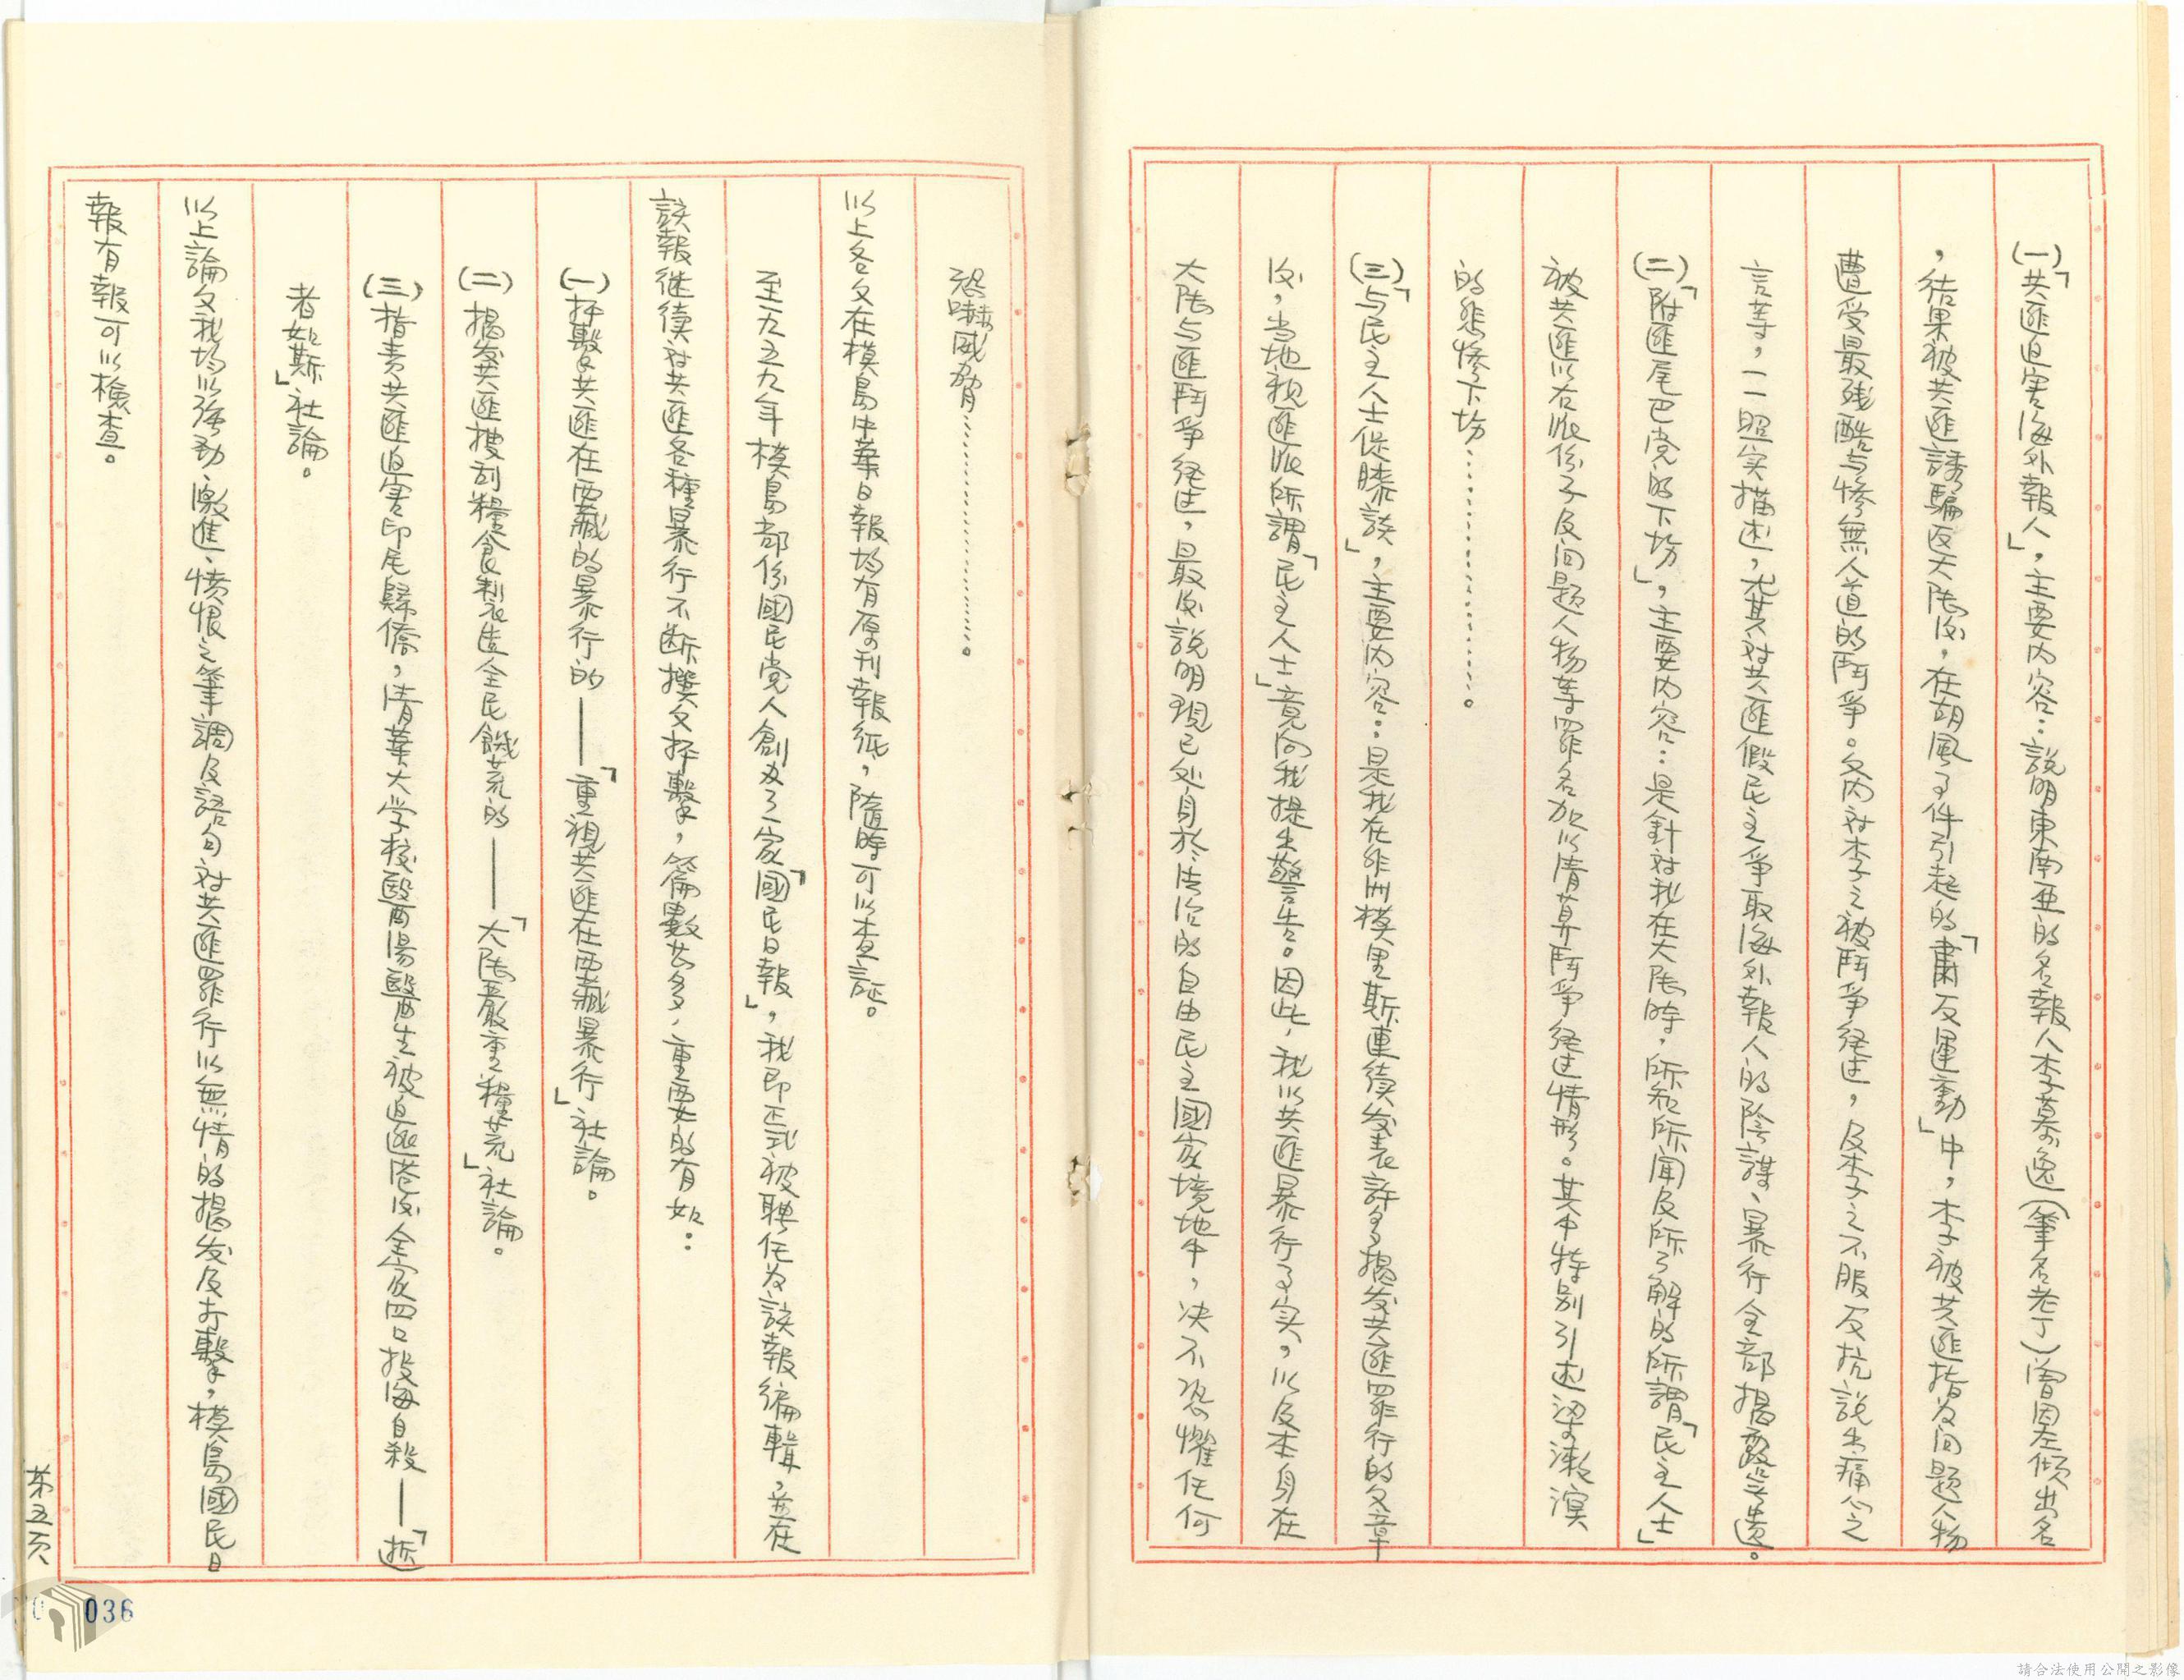 (一)「共匪迫害海外報人」，主要內容：說明東南亞的名報人李慕逸（筆名老丁）曾因左傾出名
，结果被共匪誘騙返大陆后，在胡風事件引起的「肅反運動」中，李被共匪指为问題人物
遭受最残酷与惨無人道的鬥爭。文內对李之被鬥爭经过，及李之不服反抗說出痛心之
言等，一一照实描述，尤其对共匪假民主爭取海外報人的陰謀、暴行全部揭露無遺。
(二)「附匪尾巴党的下場」，主要內容：是針对我在大陆時，所知所闻及所了解的所謂「民主人士」
被共匪以右派份子及问題人物等罪名加以清算鬥爭经过情形。其中特別引述梁漱溟
的悲惨下場……………。
(三)「与民主人士促膝談」，主要內容：是我在非洲模里斯連续发表許多揭发共匪罪行的文章
后，当地親匪派所謂「民主人士」竟向我提出警告。因此，我以共匪暴行事实，以及本身在
大陆与匪鬥爭经过，最后說明現已处身於法治的自由民主國家境地中，决不恐懼任何
恐嚇威脅……………。
以上各文在模島中華日報均有原刊報紙，隨時可以查証。
至一九五九年模島部份國民党人創办了一家「國民日報」，我即正式被聘任为該報編輯，並在
該報继续对共匪各種暴行不断撰文抨擊，篇數甚多，重要的有如：
(一)抨擊共匪在西藏的暴行的——「重視共匪在西藏暴行」社論。
(二)揭发共匪搜刮糧食製造全民饑荒的——「大陆嚴重糧荒」社論。
(三)指责共匪迫害印尼歸僑，清華大学校醫西湯醫生被迫逃港后全家四口投海自殺——「逝
者如斯」社論。
以上論文我均以強勁、激進、憤恨之筆調及語句对共匪罪行以無情的揭发及打擊，模島國民日
報有報可以檢查。
第五页
036
請合法使用公開之影像